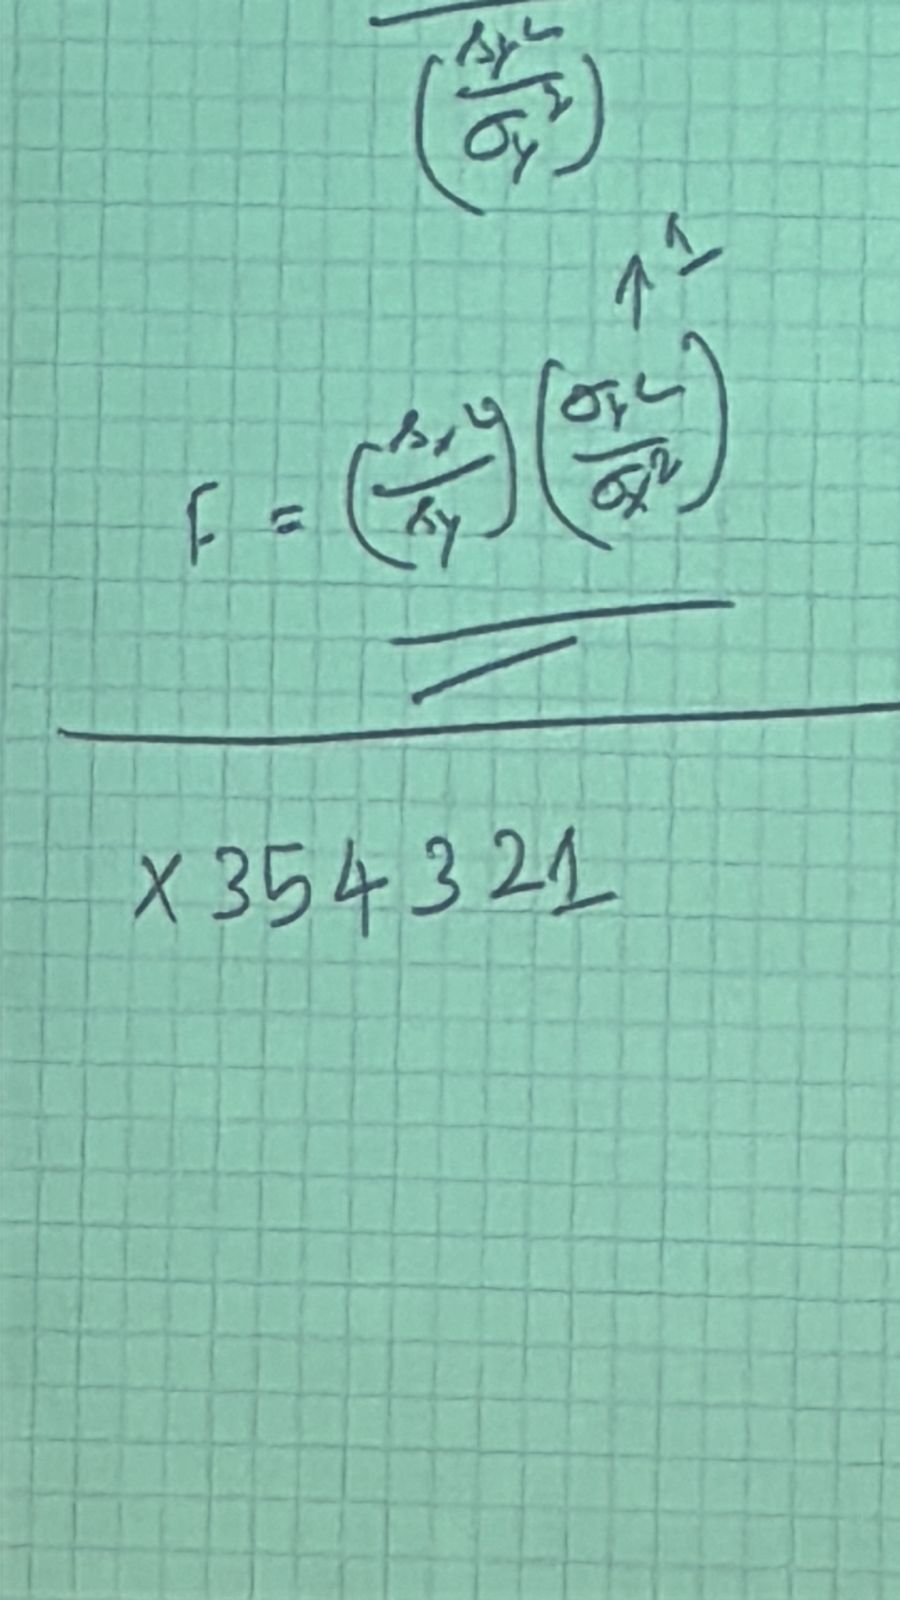 (sy² / σy²)
↑ 1
F = (sx² / sy) (σy² / σx²)
X354321